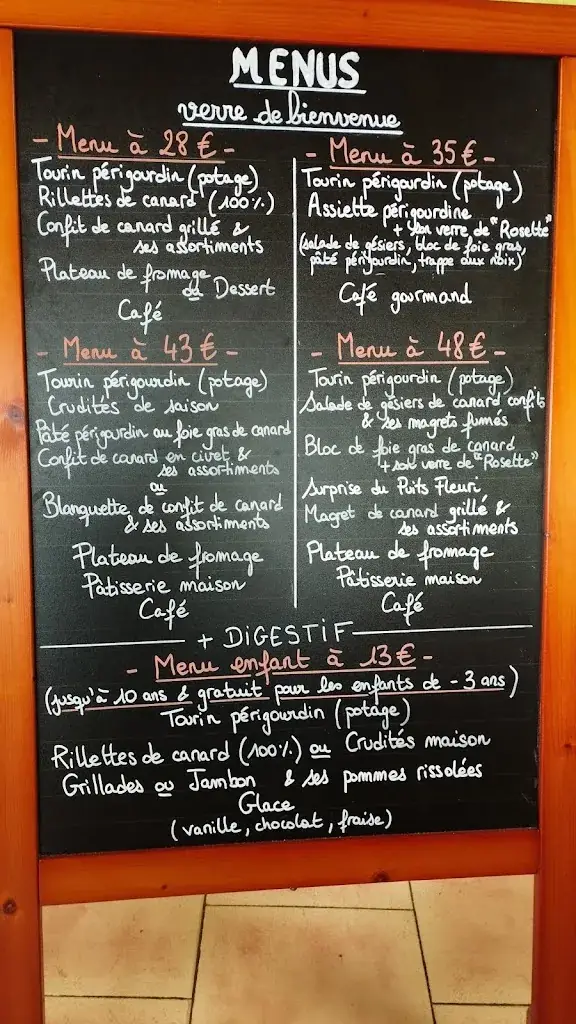 MENUS
verre de bienvenue
- Menu à 28 € -
Tourin périgourdin (potage)
Rillettes de canard (100%)
Confit de canard grillé &
ses assortiments
Plateau de fromage
ou Dessert
Café
- Menu à 35 € -
Tourin périgourdin (potage)
Assiette périgourdine
+ son verre de "Rosette"
(salade de gésiers, bloc de foie gras,
pâté périgourdin, trappe aux noix)
Café gourmand
- Menu à 43 € -
Tourin périgourdin (potage)
Crudités de saison
Pâté périgourdin au foie gras de canard
Confit de canard en civet &
ses assortiments
ou
Blanquette de confit de canard
& ses assortiments
Plateau de fromage
Pâtisserie maison
Café
- Menu à 48 € -
Tourin périgourdin (potage)
Salade de gésiers de canard confits
& ses magrets fumés
Bloc de foie gras de canard
+ son verre de "Rosette"
Surprise du Puits Fleuri
Magret de canard grillé &
ses assortiments
Plateau de fromage
Pâtisserie maison
Café
+ DIGESTIF
- Menu enfant à 13 € -
(jusqu'à 10 ans & gratuit pour les enfants de - 3 ans)
Tourin périgourdin (potage)
Rillettes de canard (100%) ou Crudités maison
Grillades ou Jambon & ses pommes rissolées
Glace
(vanille, chocolat, fraise)